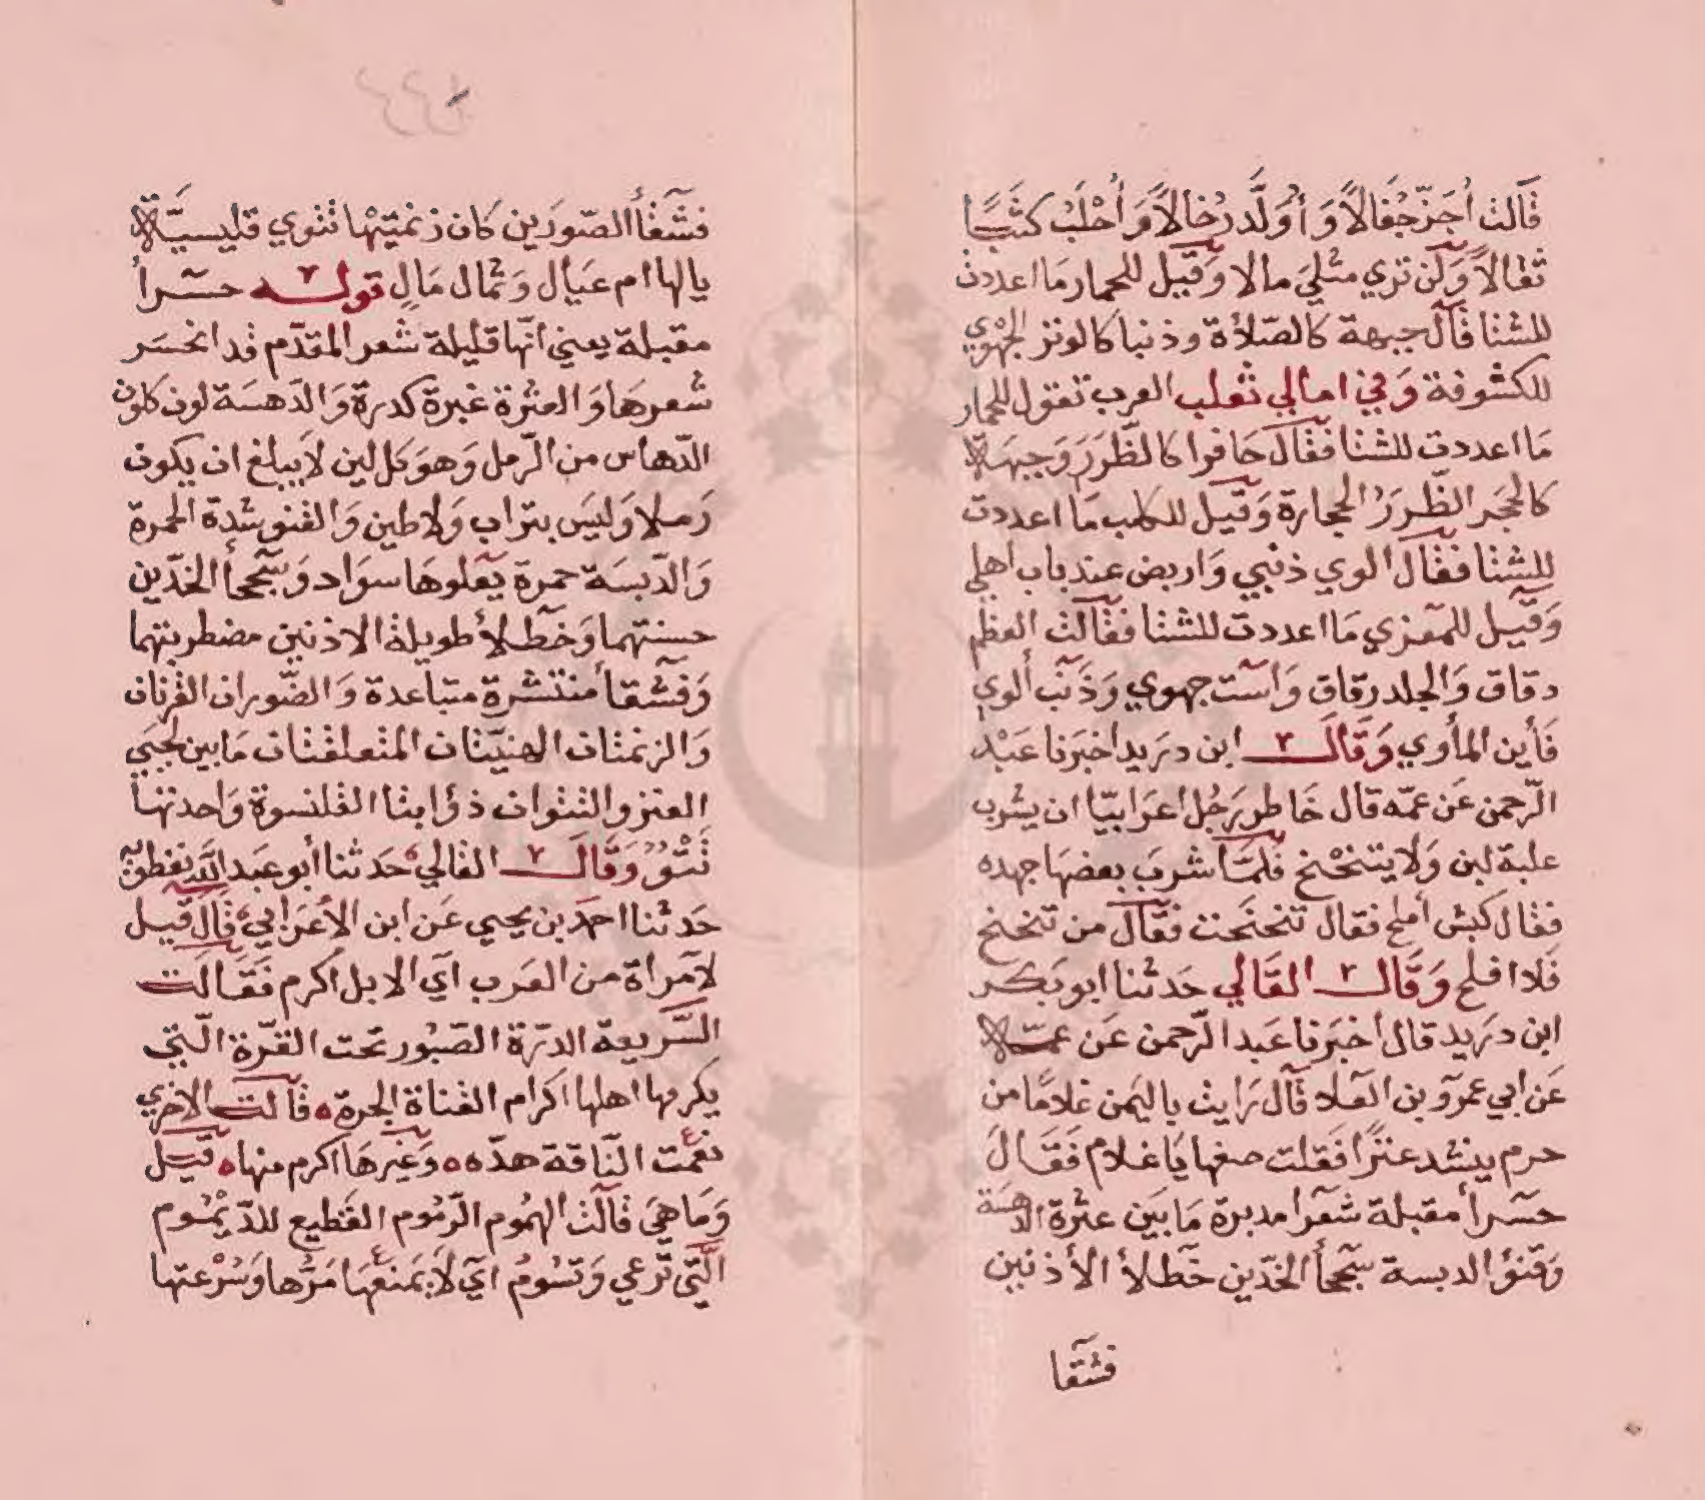 قالت أجزّ جفالاً وأولّد رخالاً وأحلب كثباً
ثقالاً ولن تري مثلي مالا وقيل للحمار ما اعددت
للشتا قال جبهة كالصلأة وذنبا كالوتر الجهوي
للكشوفة وفي امالي ثعلب العرب تقول للحمار
ما اعددت للشتا فقال حافرا كالظّرر وجبهة
كالحجر الظّرر الحجارة وقيل للكلب ما اعددت
للشتا فقال الوي ذنبي واربض عند باب اهلي
وقيل للمعزي ما اعددت للشتا فقالت العظم
دقاق والجلد رقاق واست جهوي وذنب ألوي
فأين المأوي وقال ابن دريد اخبرنا عبد
الرّحمن عن عمّه قال خاطر رجل اعرابيّا ان يشرب
علبة لبن ولا يتنحنح فلمّا شرب بعضها جهده
فقال كبش أملح فقال تنحنحت فقال من تنحنح
فلا افلح وقال القالي حدثنا ابو بكر
ابن دريد قال أخبرنا عبد الرّحمن عن عمّه
عن ابي عمرو بن العلا قال رايت باليمن غلامًا من
جرم ينشد عنزًا فقلت صفها يا غلام فقال
حسرأ مقبلة شعرا مدبرة ما بين عثرة الدهسة
وقنؤ الدبسة سجحأ الخدّين خطلأ الأذنين
فشقا
٤٤٦
فشقأ الصّورين كان زنمتيها تتوي قليسيّة
يالها ام عيال وثمال مال قوله حسرا
مقبلة يعني انّها قليلة شعر المقدّم قد انحسر
شعرها والعثرة غبرة كدرة والدهسة لون كلون
الدّهاس من الرّمل وهو كل لين لا يبلغ ان يكون
رملا وليس بتراب ولا طين والقنو شدة الحمرة
والدّبسة حمرة يعلوها سواد وسجحأ الخدّين
حسنتهما وخطلأ طويلة الاذنين مضطربتهما
وفشقأ منتشرة متباعدة والصّوران القرنان
والزنمتان الهنيّتان المتعلقتان ما بين لحيي
العنز والتتوان ذؤابتا القلنسوة واحدتها
تتو وقال القالي حدثنا أبو عبد الله نفطويه
حدثنا احمد بن يحيي عن ابن الأعرابي قال قيل
لامراة من العرب اي الابل أكرم فقالت
السّريعة الدرّة الصّبور تحت القرّة الّتي
يكرمها اهلها اكرام الفتاة الحرة قالت الاخري
نعمت النّاقة هذه وغيرها اكرم منها قيل
وما هي قالت الهموم الرّموم القطيع للدّيموم
الّتي ترعي وتسوم اي لا يمنعها مرّها وسرعتها